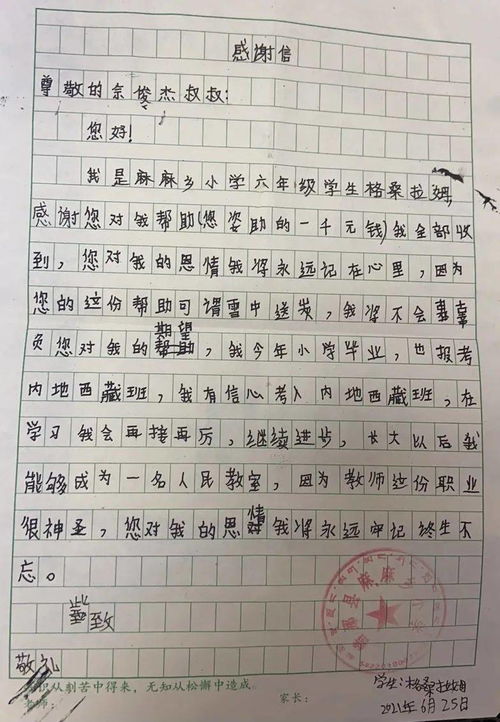 感谢信
尊敬的宗俊杰叔叔:
您好!
我是麻麻乡小学六年级学生格桑拉姆,
感谢您对我帮助(您姿助的一千元钱)我全部收
到,您对我的恩情我将永远记在心里,因为
您的这份帮助可谓雪中送炭,我将不会辜
负您对我的期望,我今年小学毕业,也报考
内地西藏班,我有信心考入内地西藏班,在
学习我会再接再厉,继续进步,长大以后我
能够成为一名人民教室,因为教师这份职业
很神圣,您对我的恩情我将永远牢记终生不
忘。
致
敬礼
知识从刻苦中得来,无知从松懈中造成。
老师: 家长:
学生:格桑拉姆
2021年6月25日